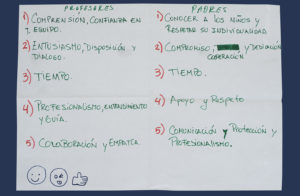 PROFESORES
1) COMPRENSIÓN, CONFIANZA EN
EQUIPO.
2) ENTUSIASMO, DISPOSICIÓN Y
DIALOGO.
3) TIEMPO.
4) PROFESIONALISMO, ENTENDIMIENTO
Y GUÍA.
5) COLABORACIÓN Y EMPATÍA.
PADRES
1) CONOCER A LOS NIÑOS Y
RESPETAR SU INDIVIDUALIDAD
2) COMPROMISO, Y DEDICACIÓN
COOPERACIÓN
3) TIEMPO.
4) APOYO Y RESPETO
5) COMUNICACIÓN Y PROTECCIÓN Y
PROFESIONALISMO.